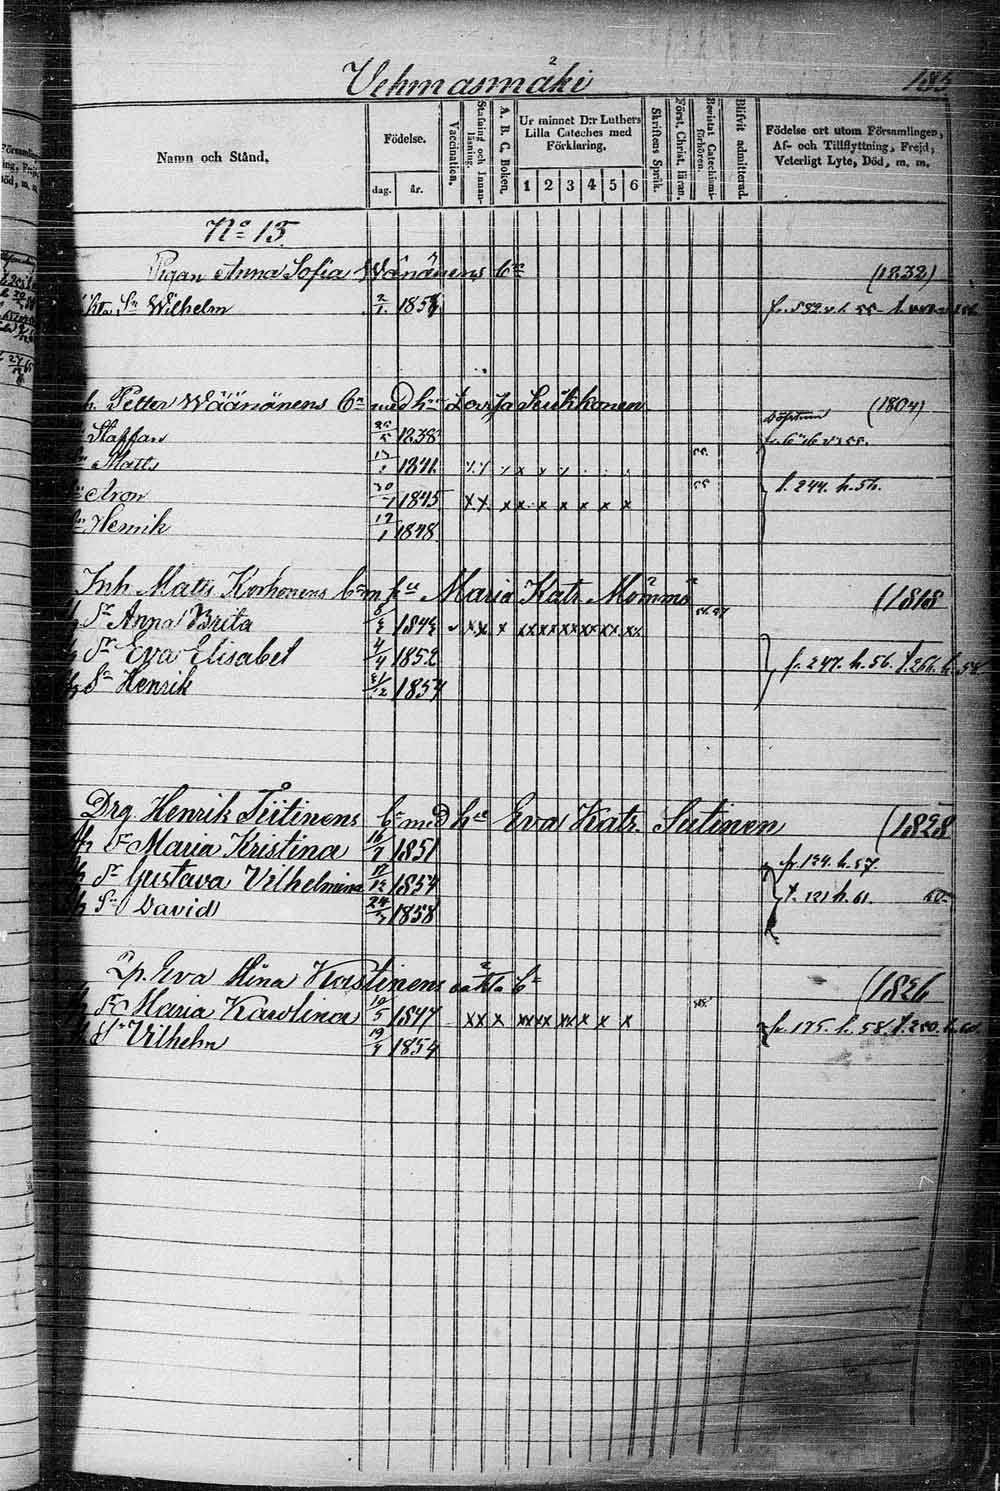 Vehmasmäki 185
Namn och Stånd.
Födelse.
dag. år.
Vaccination.
Stafning och Innanläsning.
A. B. C. Boken.
Ur minnet D:r Luthers Lilla Cateches med Förklaring.
1 2 3 4 5 6
Skriftens Språk.
Först. Christ. läran.
Bevistat Catechismiförhören.
Blifvit admitterad.
Födelse ort utom Församlingen, Af- och Tillflyttning, Frejd, Veterligt Lyte, Död, m. m.
No 13
Pigan Anna Sofia Wänänens bn (1832)
Sn Wilhelm 1854
Petter Wäänänens bn med hu Lovisa Leukkonen (1804)
Staffan 25/5 1838
Matts 1841 55
Aron 30/1 1845 x x x x x x x x x 55 f. 244. h. 56.
Henrik 12/1 1848
Inh Matts Korhonens bn m hu Maria Katr. Mömmö (1818
Dr Anna Brita 1843 xx x xx xx xx xx xx xx
Dr Eva Elisabet 4/4 1852 fr. 247. h. 56. f. 266. h. 58
Sn Henrik 31/12 1854
Drg. Henrik Tiitinens bn med hu Eva Katr. Sutinen (1828
Dr Maria Kristina 1851 fr. 124. h. 57.
Dr Gustava Vilhelmina 17/12 1854 f. 121 h. 61. 60
Sn David 1858
Lp. Eva Stina Kastinens oäkta bn (1826
Dr Maria Karolina 10/5 1847 xx x xx xx xx x x x
Sn Vilhelm 1854 fr. 175. h. 58. f. 250. h. 60.